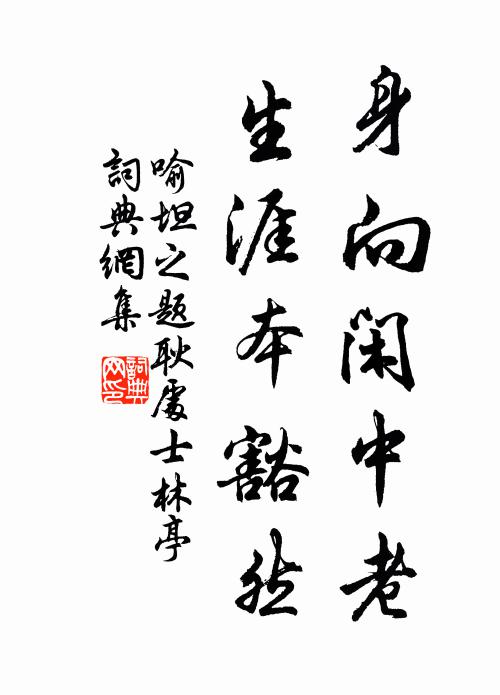 身向閑中老
生涯本豁然
喻坦之題耿處士林亭
詞典網集
詞典網印